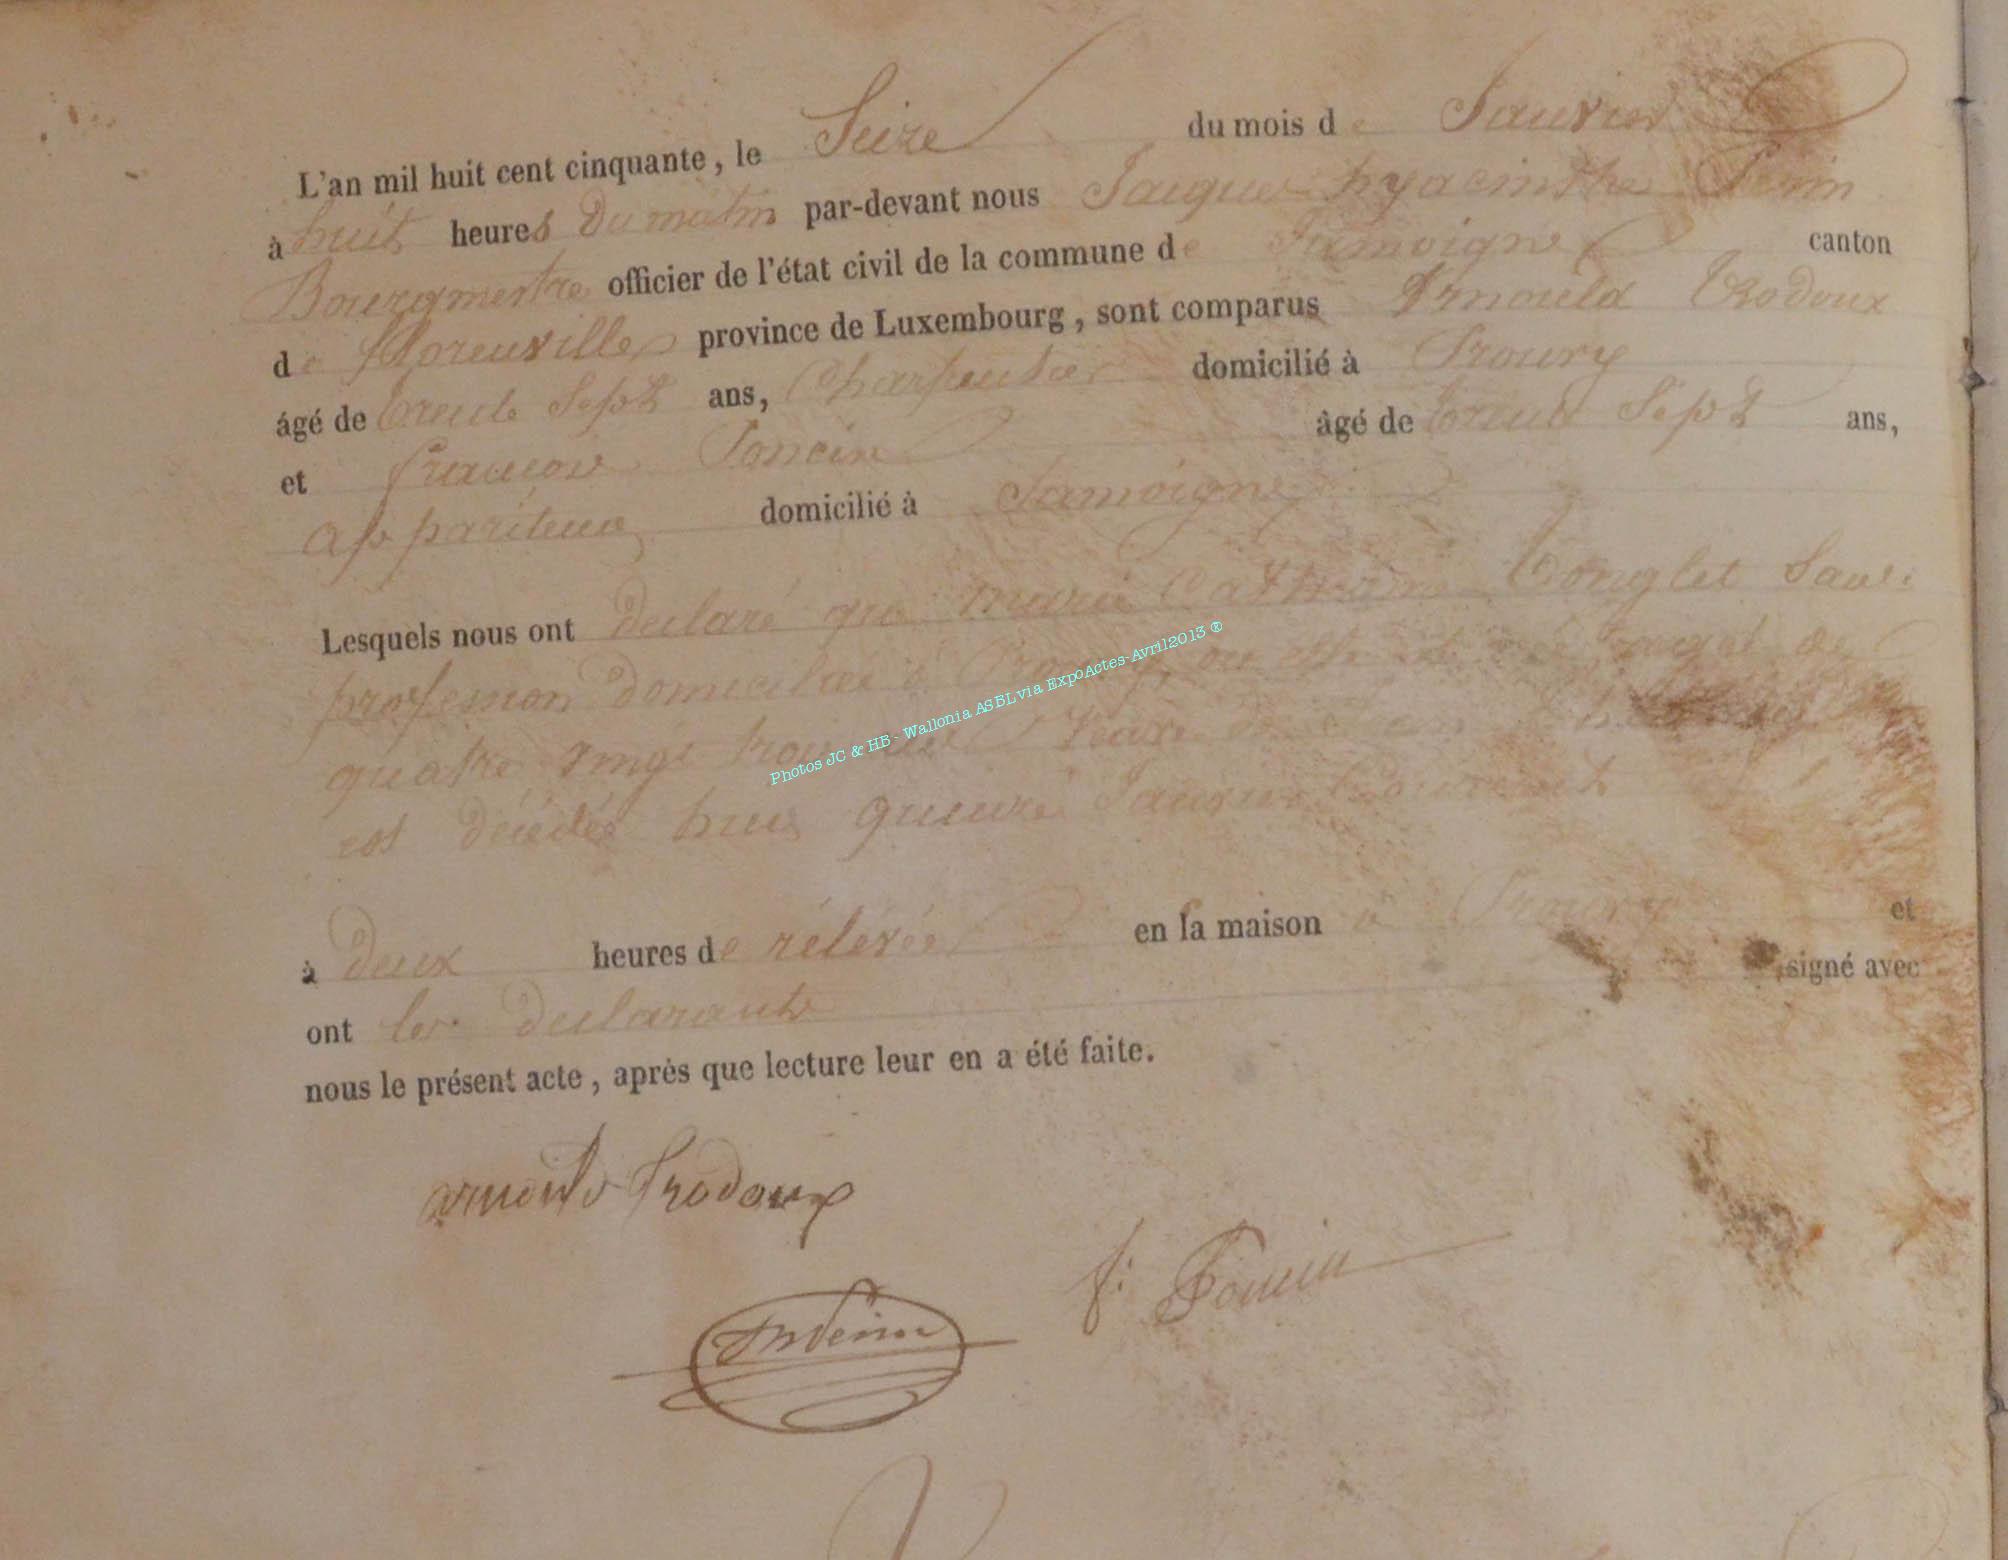 L'an mil huit cent cinquante, le Seize du mois de Janvier
à huit heures du matin par-devant nous Jacques hyacinthe
Bourgmestre officier de l'état civil de la commune de Jamoigne canton
de florenville province de Luxembourg, sont comparus Arnould Trodoux
âgé de trente Sept ans, Charpentier domicilié à Prouvy
et françois Poncin âgé de trente Sept ans,
appariteur domicilié à Jamoigne
Lesquels nous ont declaré que marie Catherine Conglet Sans
profession domiciliée à Prouvy, âgée de
quatre vingt trois ans Veuve de
est décédée hier quinze Janvier Courant
à deux heures de rélévée en la maison à Prouvy et
ont les declarants signé avec
nous le présent acte, après que lecture leur en a été faite.
arnould Trodoux
f: Poncin
Photos JC & HB - Wallonia ASBL via ExpoActes-Avril2013 ®